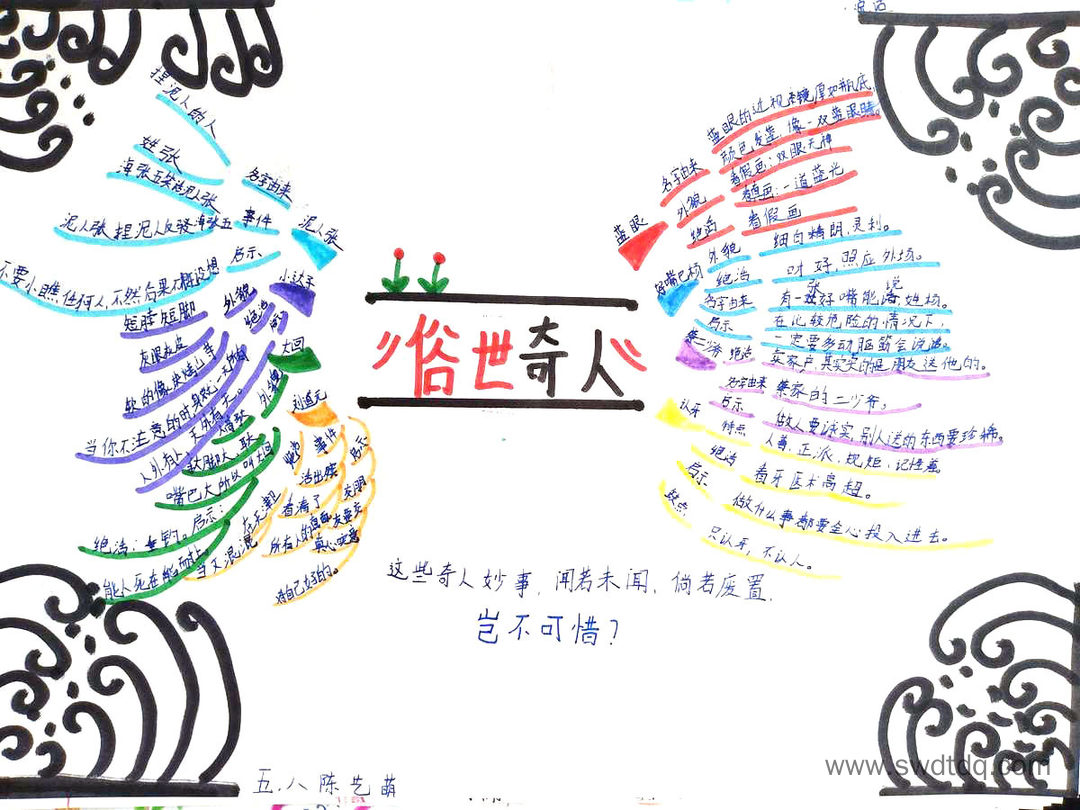 俗世奇人
蓝眼
名字由来
蓝眼的近视眼镜厚如瓶底,
颜色发蓝,像一双蓝眼睛。
外貌
看假画:双眼无神
看真画:一道蓝光
绝活
看假画
好嘴巴杨
外貌
细白精朗,灵利。
绝活
叶好,照应外场。
名字由来
有一张好嘴能说
姓杨。
启示
在比较危险的情况下,
一定要多动脑筋会说话。
蔡二少爷
绝活
卖家产,其实卖的是朋友送他的。
名字由来
蔡家的二少爷,
启示
做人要诚实,别人送的东西要珍惜。
认牙
特点
人善,正派,规矩,记性差
绝活
看牙医术高超。
启示
做什么事都要全心投入进去。
缺点
只认牙,不认人。
泥人张
名字由来
捏泥人的人
姓张
事件
泥人张捏泥人反驳海张五
启示
不要小瞧任何人,不然后果不堪设想
小达子
外貌
短脖短脚
绝活
当你不注意的时
启示
人外有人
天外有天。
大回
外貌
嘴巴大所以叫大回
绝活:垂钓。
启示:
能人死在能耐上。
刘道元
绝活
事件
启示
活出殡
看清了
所有人的真面
当文混混
真心
对自己好的。
这些奇人妙事,闻若未闻,倘若废置,
岂不可惜?
五.八 陈艺萌
www.swdtdq.com